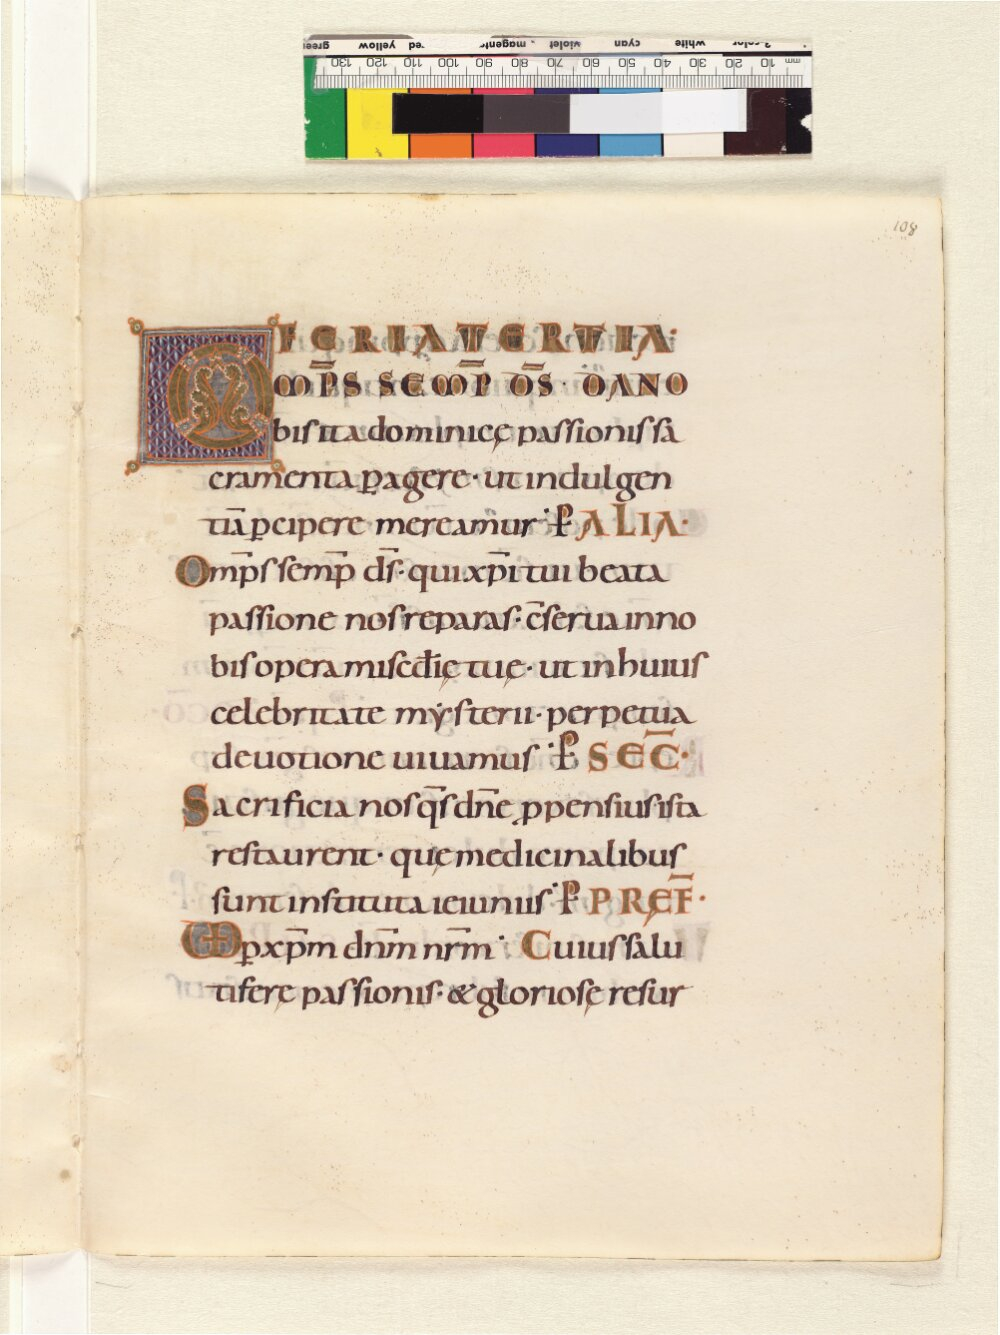 green yellow red magenta violet cyan white 3-color
130 120 110 100 90 80 70 60 50 40 30 20 10 mm
108
FERIA TERTIA·
OM̄P̄S SEMP̄ D̄S· DA NO
bis ita dominicę passionis sa
cramenta ꝑagere· ut indulgen
tiā ꝑcipere mereamur· ꝑ ALIA·
Omp̄s semp̄ ds̄· qui xp̄i tui beata
passione nos reparas· c̄serua in no
bis opera miscđię tuę· ut in huius
celebritate mẏsterii· perpetua
deuotione uiuamus· ꝑ SEC̄·
Sacrificia nos qs̄ dn̄e ꝓpensius ista
restaurent· quę medicinalibus
sunt instituta ieiuniis· ꝑ PREF̄·
UD ꝑ xp̄m dnm̄ nrm̄· Cuius salu
tiferę passionis· & gloriosę resur